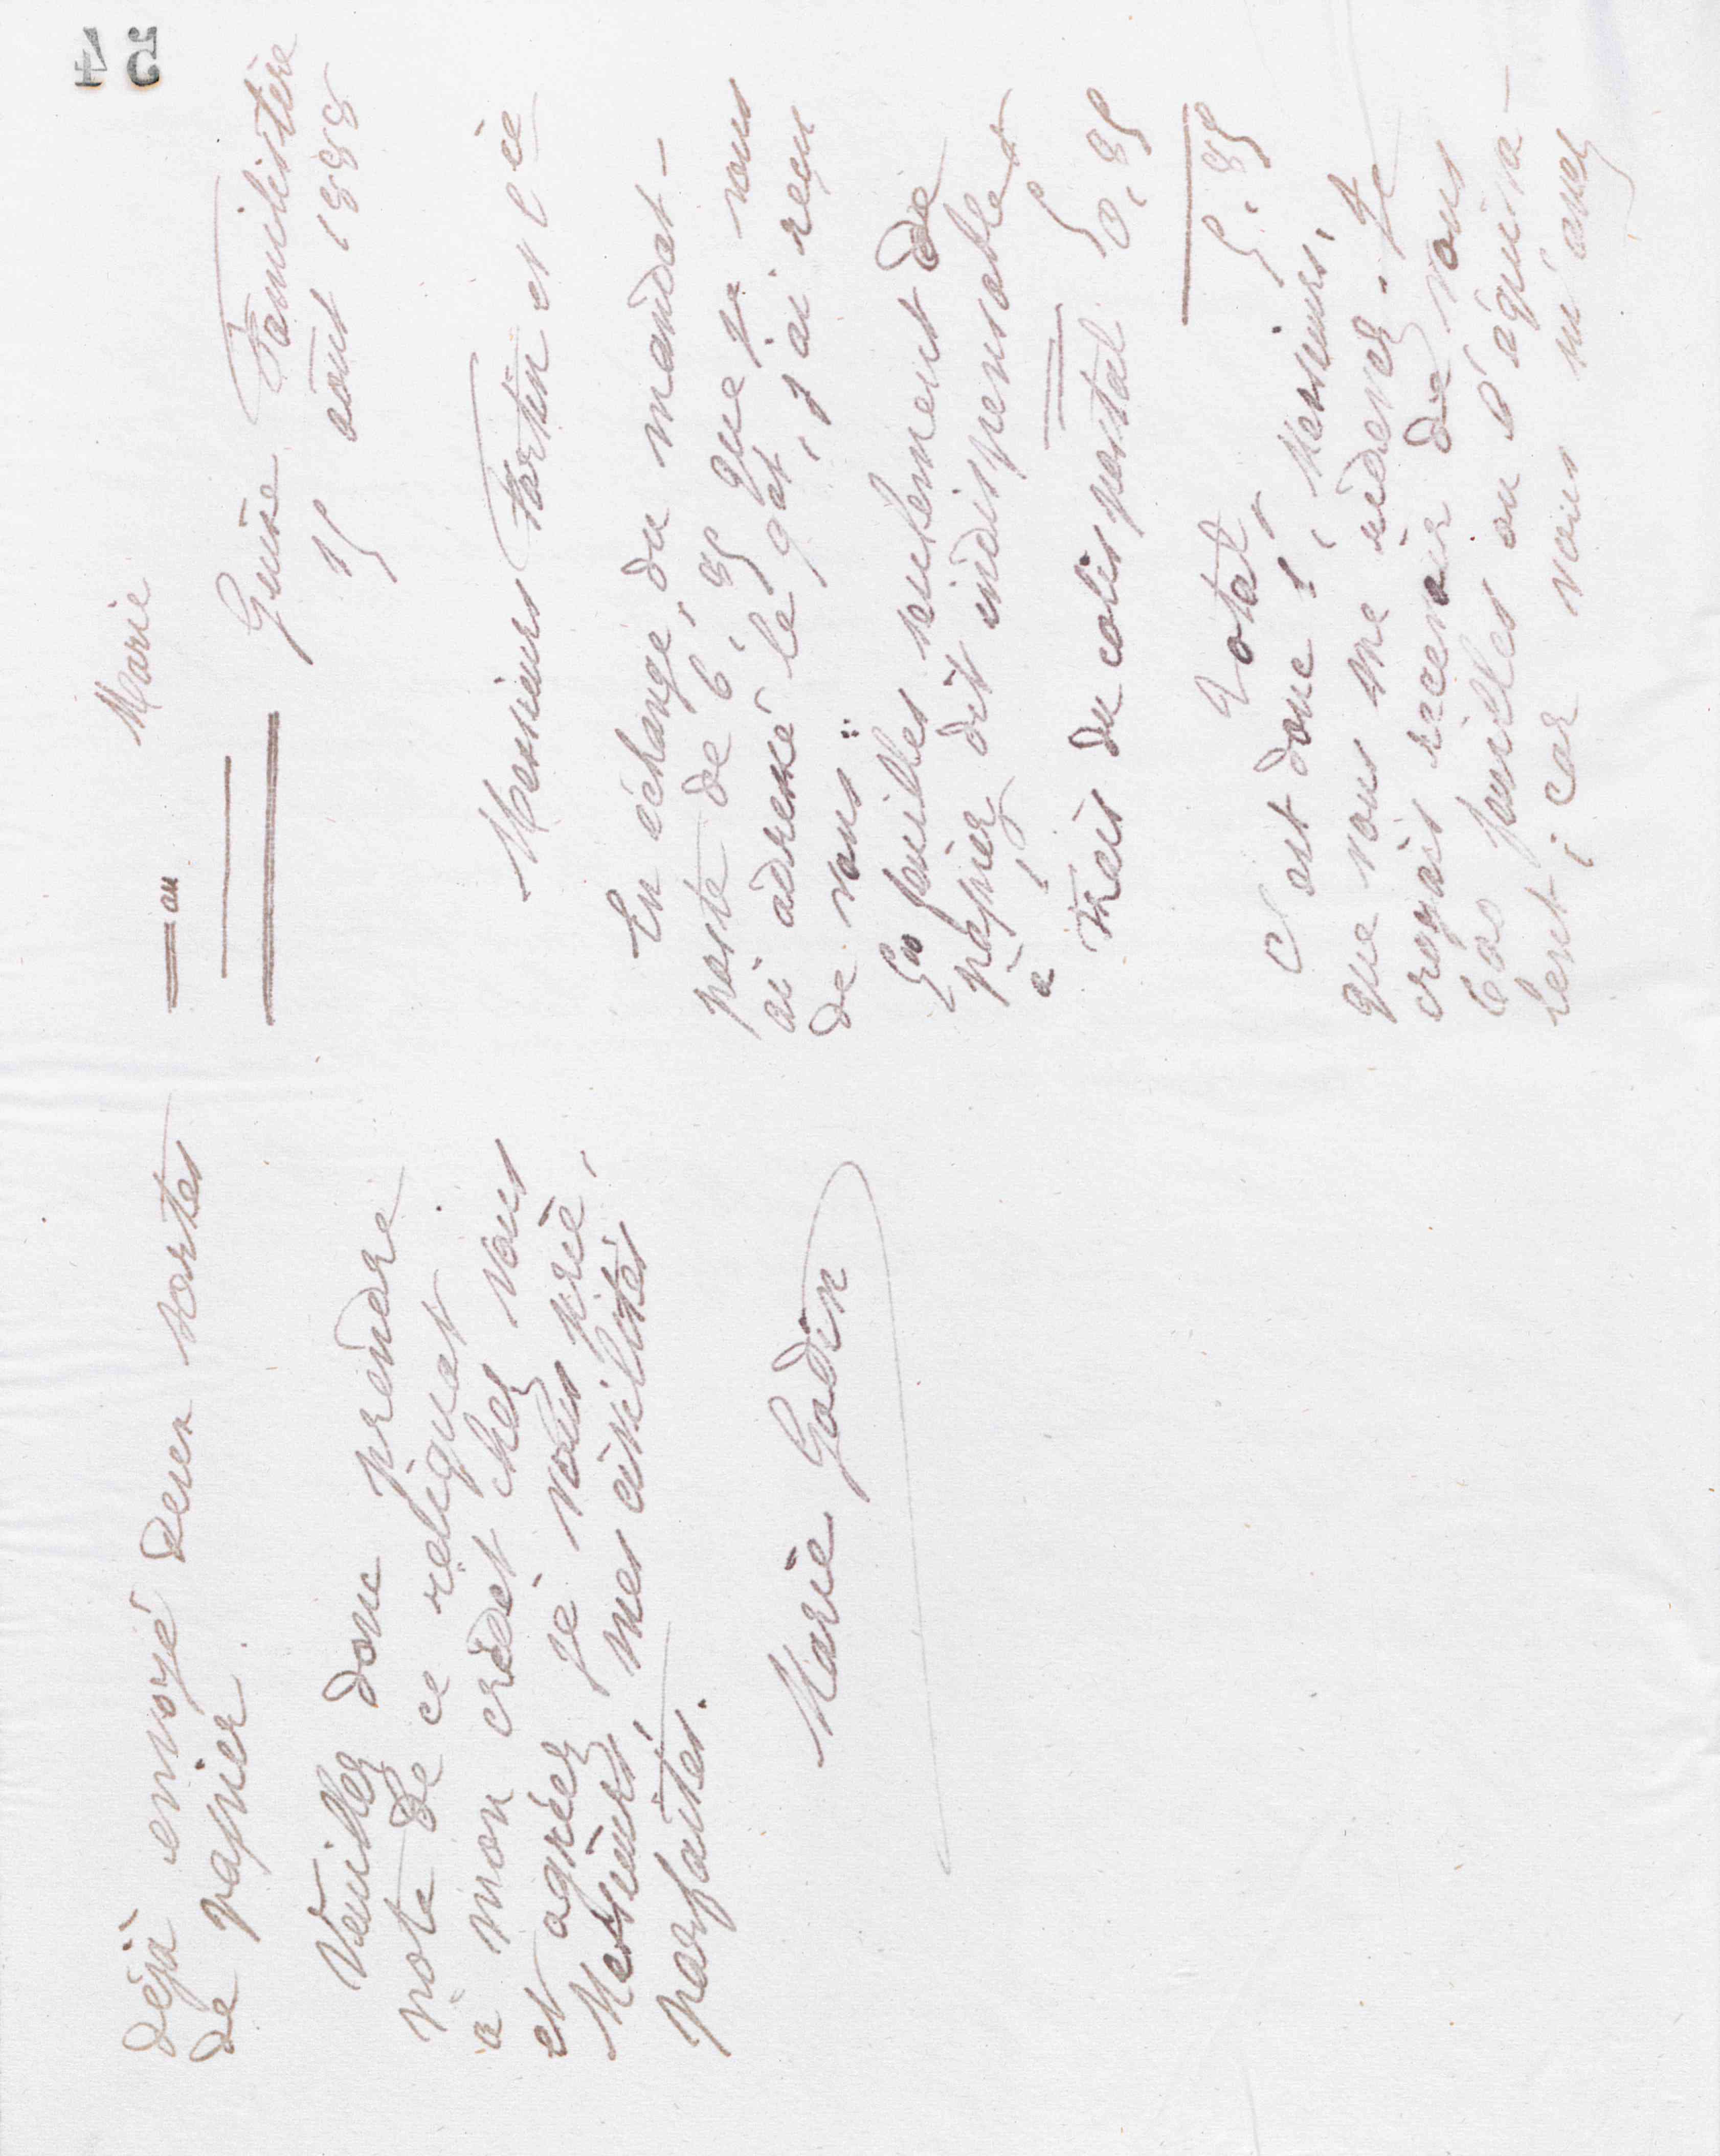 54
Marie
Guise Familistère
15 août 1888
Messieurs Fortin et Cie
En échange, du mandat-
poste de 6,85 que je vous
ai adressé le 9 ct, j'ai reçu
de vous :
50 feuilles seulement de
papier dit indispensable
à 5
Frais du colis postal 0,85
Total, 5,85
C'est donc 1, Messieurs,
que vous me redevez. Je
croyais recevoir de vous
60 feuilles ou l'équiva-
lent ; car vous m'avez
au
déjà envoyé deux sortes
de papier.
Veuillez donc prendre
note de ce reliquat
à mon crédit chez vous
et agréer je vous prie,
Messieurs, mes civilités
parfaites.
Marie Godin